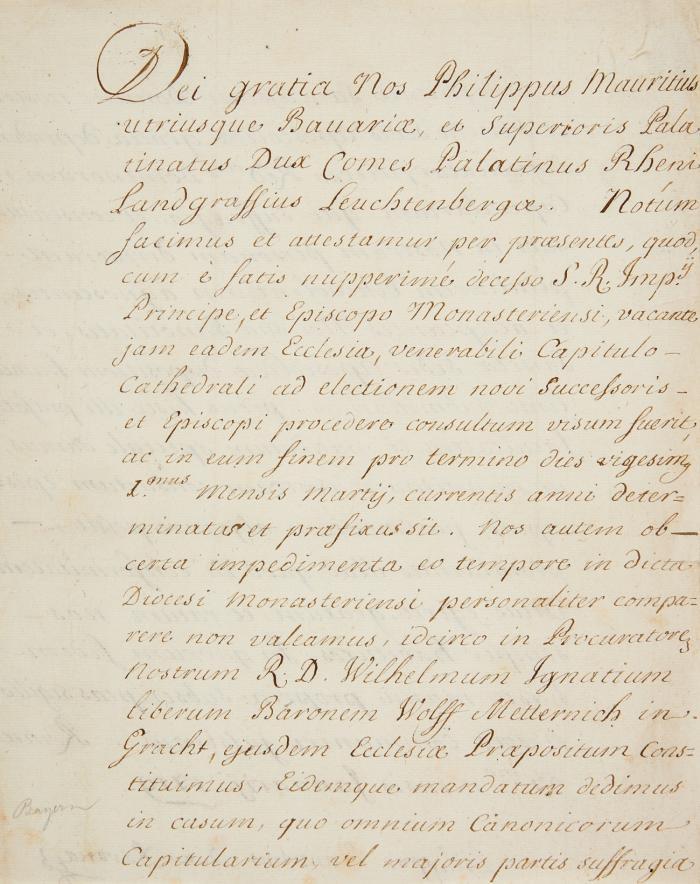 Dei gratia Nos Philippus Mauritius
utriusque Bavariæ, et Superioris Pala
tinatus Dux Comes Palatinus Rheni
Landgraffius Leuchtenbergæ. Notum
facimus et attestamur per præsentes, quod,
cum è fatis nupperimé decesso S. R. Imp.ij
Principe, et Episcopo Monasteriensi, vacante
jam eadem Ecclesia, venerabili Capitulo –
Cathedrali ad electionem novi Successoris –
et Episcopi procedere consultum visum fuerit,
ac in eum finem pro termino dies vigesimq
1.mus Mensis Martij, currentis anni deter-
minatas et præfixus sit. Nos autem ob –
certa impedimenta eo tempore in dicta
Diocesi Monasteriensi personaliter compa=
rere non valeamus, idcirco in Procuratorem
Nostrum R. D. Wilhelmum Ignatium
liberum Baronem Wolff Metternich in
Gracht, ejusdem Ecclesiæ Præpositum Cons=
tituimus, Eidemque mandatum dedimus
in casum, quo omnium Canonicorum
Capitularium, vel majoris partis suffragia
Bayern